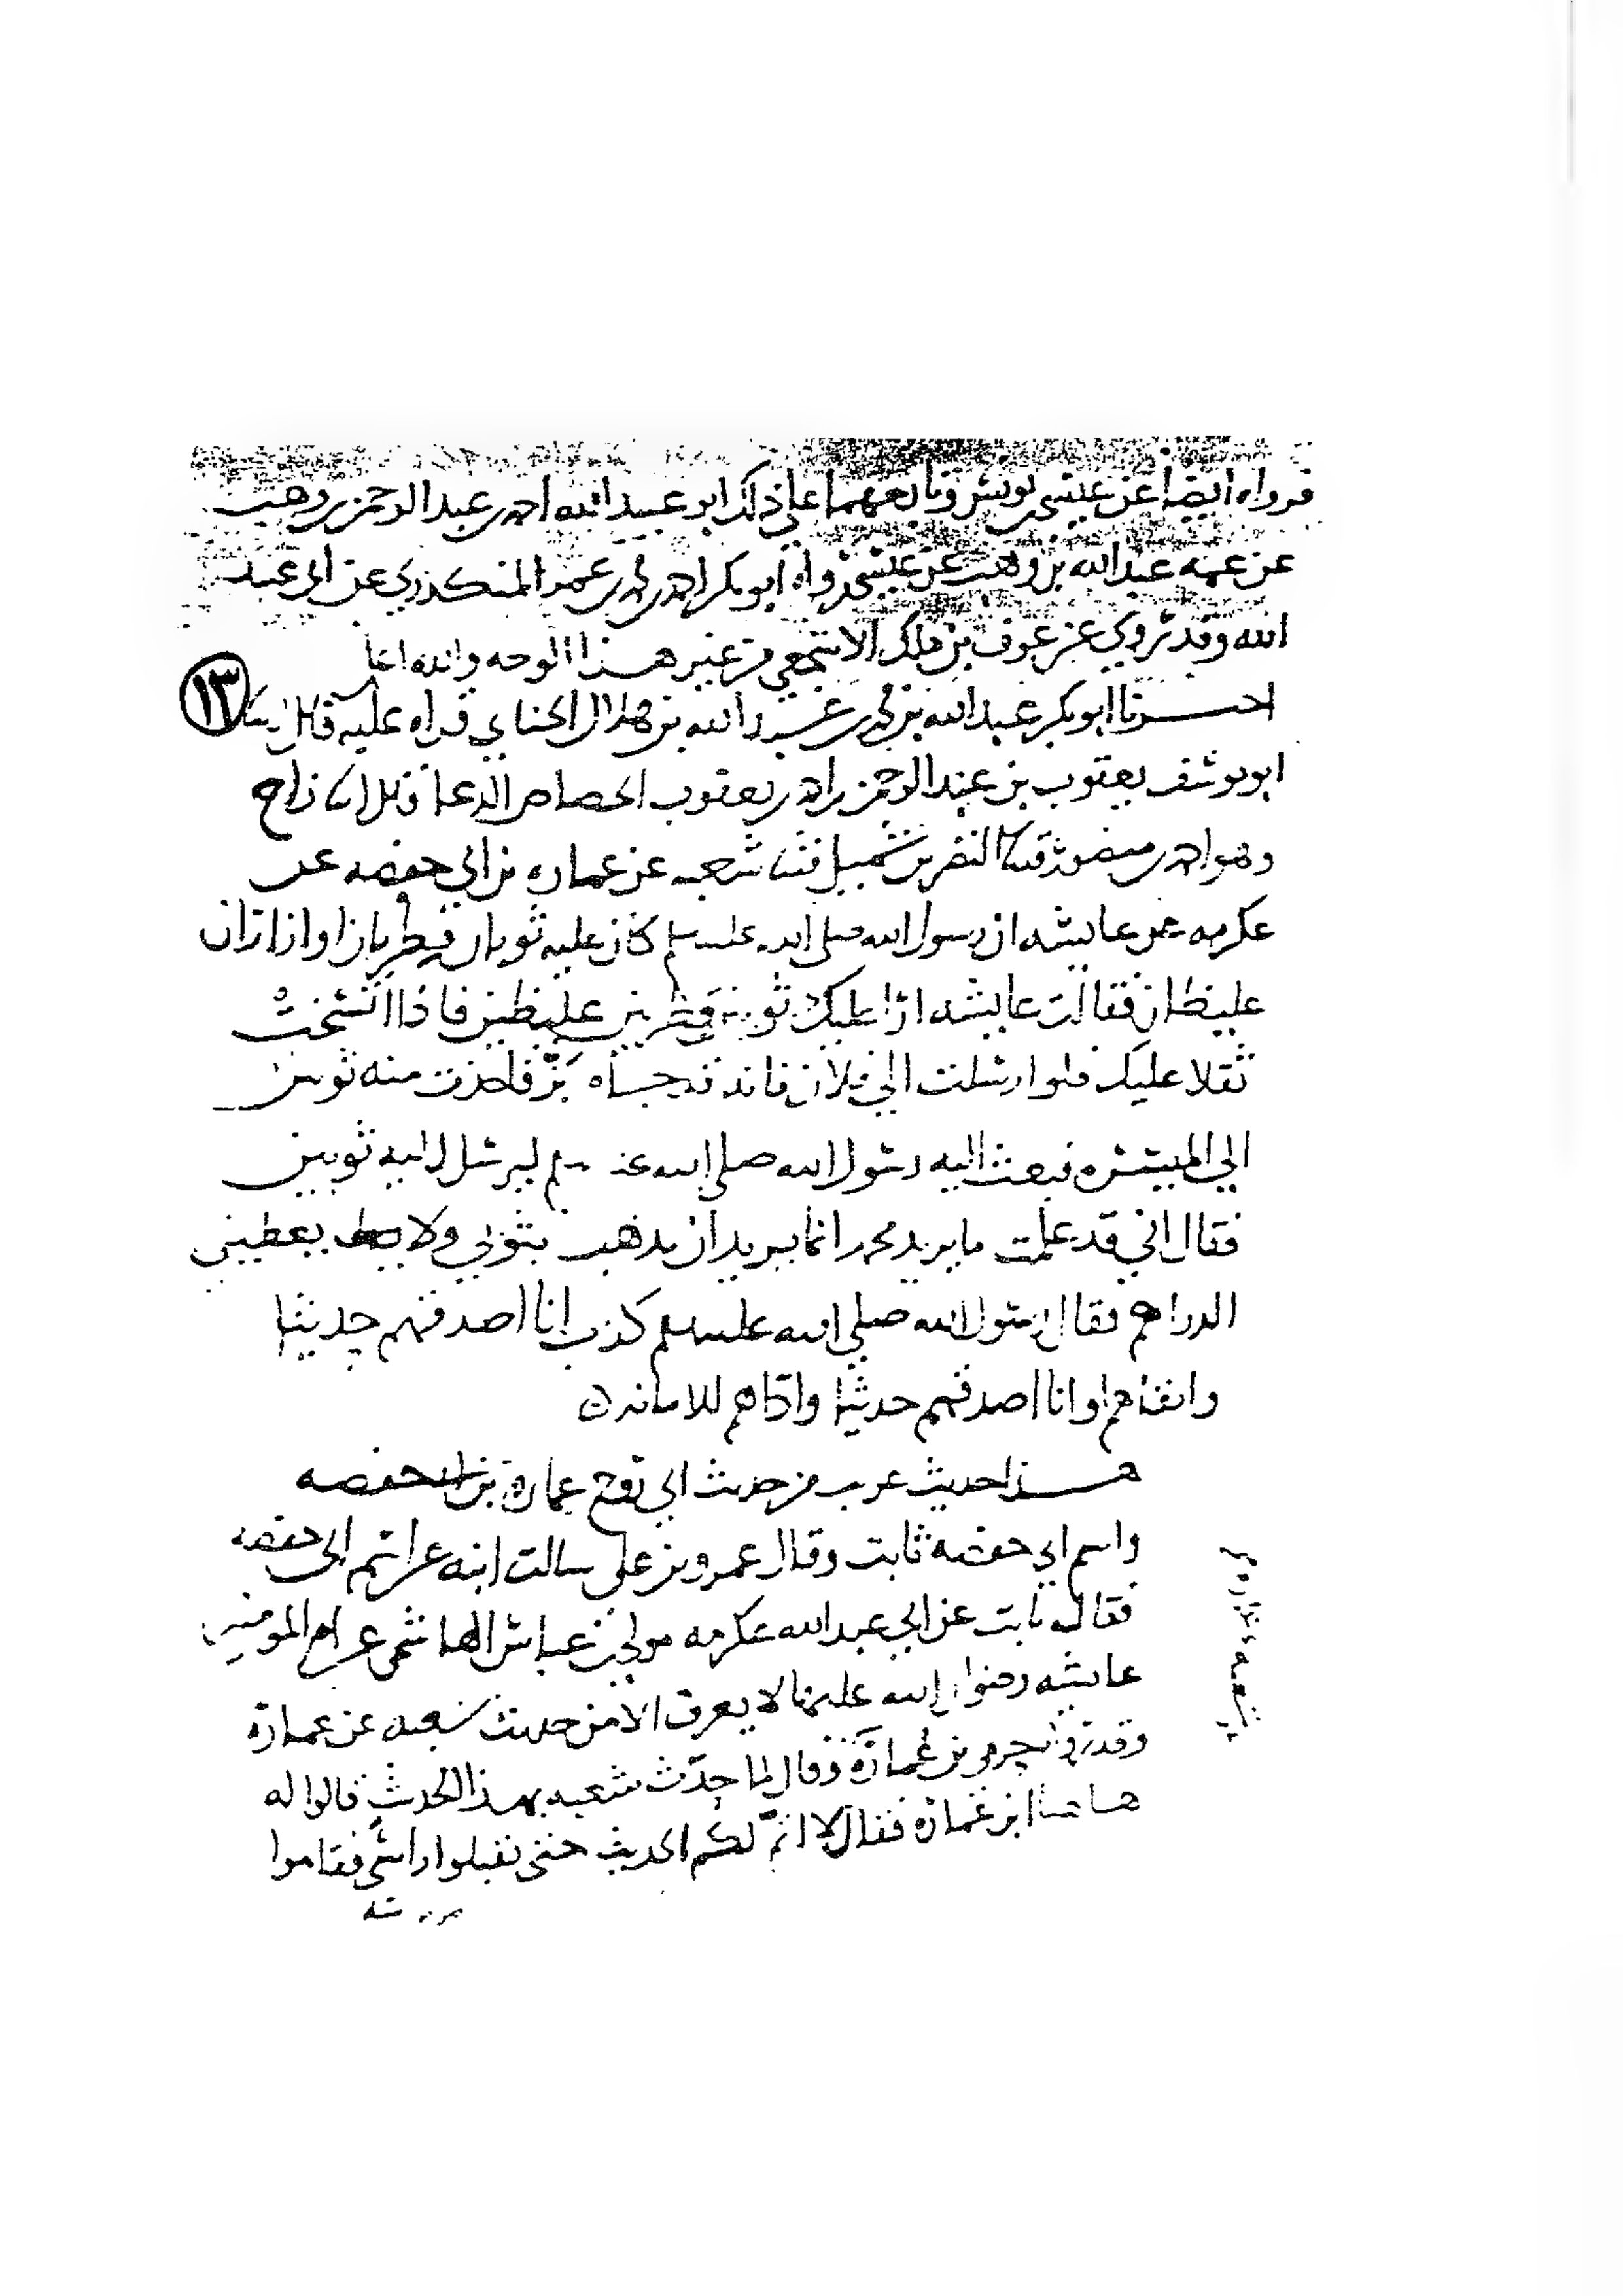 فرواه ايضا عن عيسى بن يونس وتابعهما على ذلك ابو عبيد الله احمد بن عبد الرحمن بن وهب
عن عمه عبد الله بن وهب عن عيسى ورواه ابو بكر احمد بن محمد بن عمر المنكدري عن ابي عبيد
الله وقد روي عن عوف بن مالك الاشجعي من غير هذا الوجه والله اعلم
١٣
اخبرنا ابو بكر عبد الله بن محمد بن عبد الله بن هلال الحنائي قراه عليه قال ثنا
ابو يوسف يعقوب بن عبد الرحمن بن احمد بن يعقوب الجصاص الدعا قال ثنا زاج
وهو احمد بن منصور قثنا النضر بن شميل قثنا شعبه عن عماره بن ابي حفصه عن
عكرمه عن عايشه ان رسول الله صلى الله عليه وسلم كان عليه ثوبان قطريان او ازاران
غليظان فقالت عايشه ارا عليك ثوبين قطريين غليظين فاذا اتسخت
ثقلا عليك فلو ارسلت الى فلان فانه قد جاه بز فاخذت منه ثوبين
الي الميسره فبعث اليه رسول الله صلى الله عليه وسلم ليرسل اليه ثوبين
فقال اني قد علمت ما يريد محمد انما يريد ان يذهب بثوبي ولا يعطيني
الدراهم فقال رسول الله صلى الله عليه وسلم كذب انا اصدقهم حديثا
واتقاهم او انا اصدقهم حديثا واداهم للامانه
هذا حديث غريب من حديث ابي روح عماره بن ابي حفصه
واسم ابي حفصه ثابت وقال عمرو بن علي سالت ابنه عن اسم ابي حفصه
فقال ثابت عن ابي عبد الله عكرمه مولى بن عباس الهاشمي عن ام المومنين
عايشه رضوان الله عليها لا يعرف الا من حديث شعبه عن عمارة
وقد حرمي بن عمارة وقال لما حدث شعبه بهذا الحديث قالوا له
هاهنا ابن عمارة فقال لا اتم لكم الحديث حتى تقبلوا راسه فقاموا